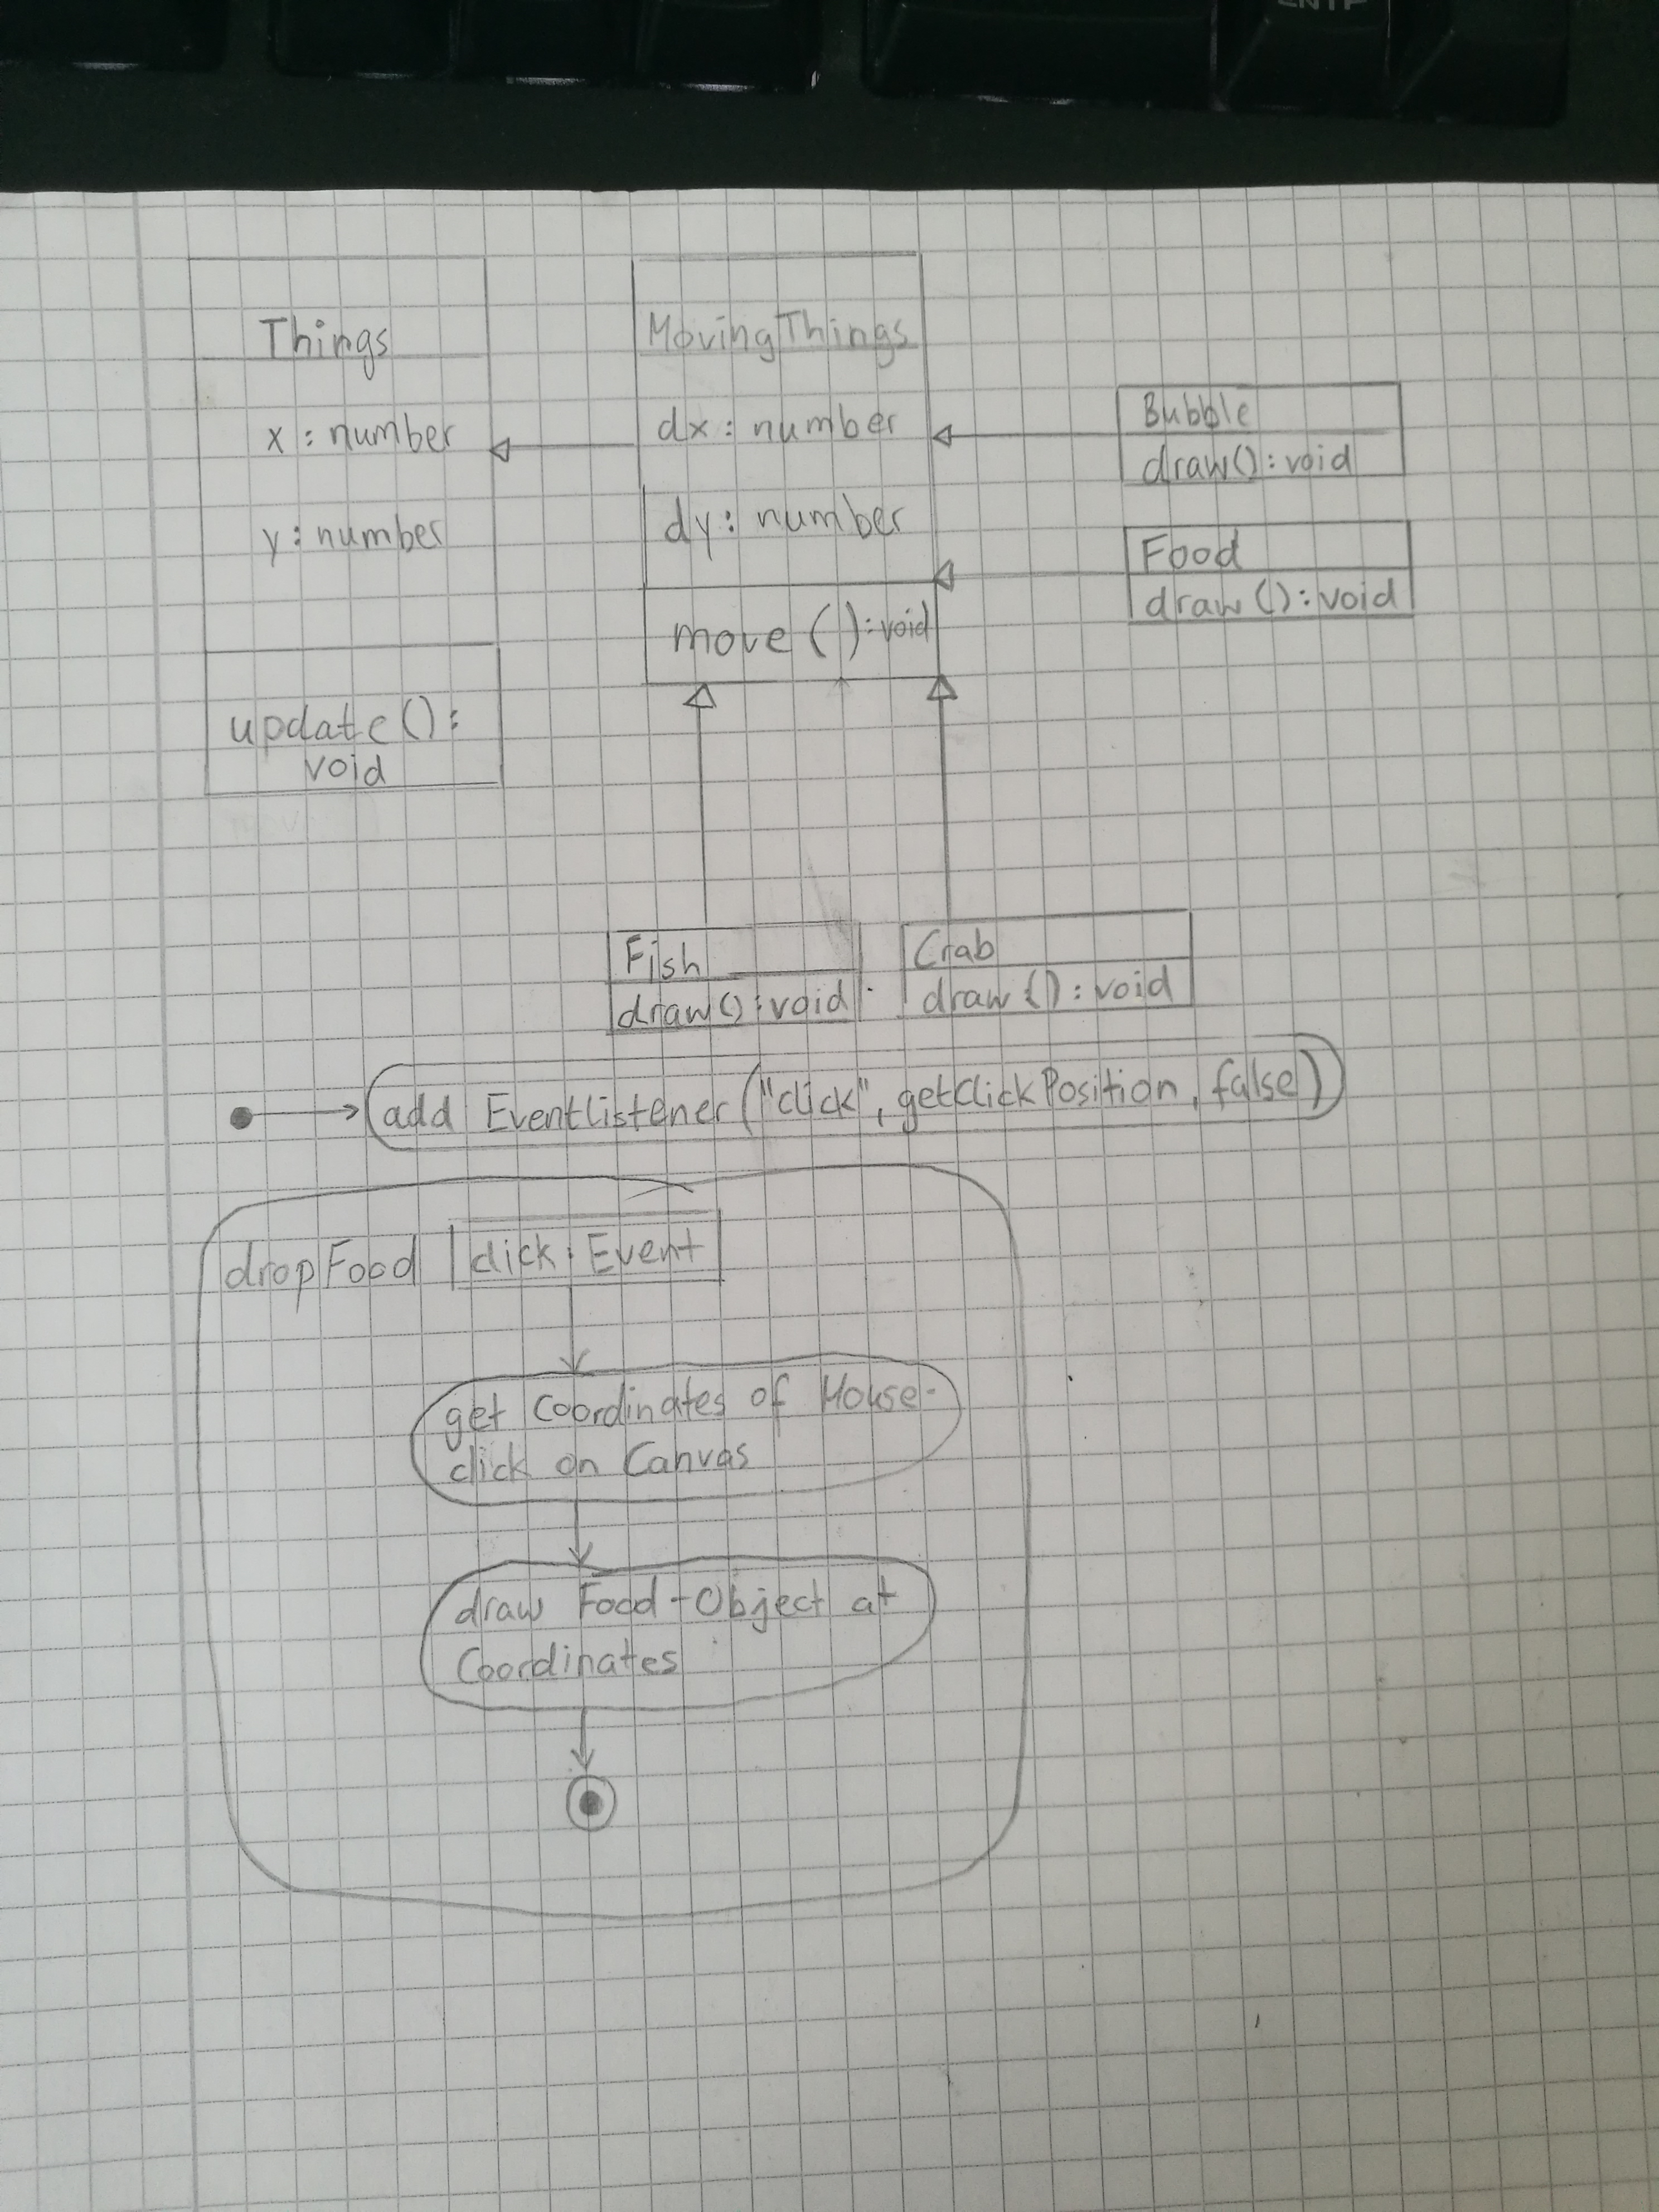 Things
x : number
y : number
update() :
void
MovingThings
dx : number
dy : number
move () : void
Bubble
draw() : void
Food
draw () : void
Fish
draw() : void
Crab
draw () : void
add EventListener ("click", getClickPosition, false)
dropFood click : Event
get Coordinates of Mouse-
click on Canvas
draw Food-Object at
Coordinates